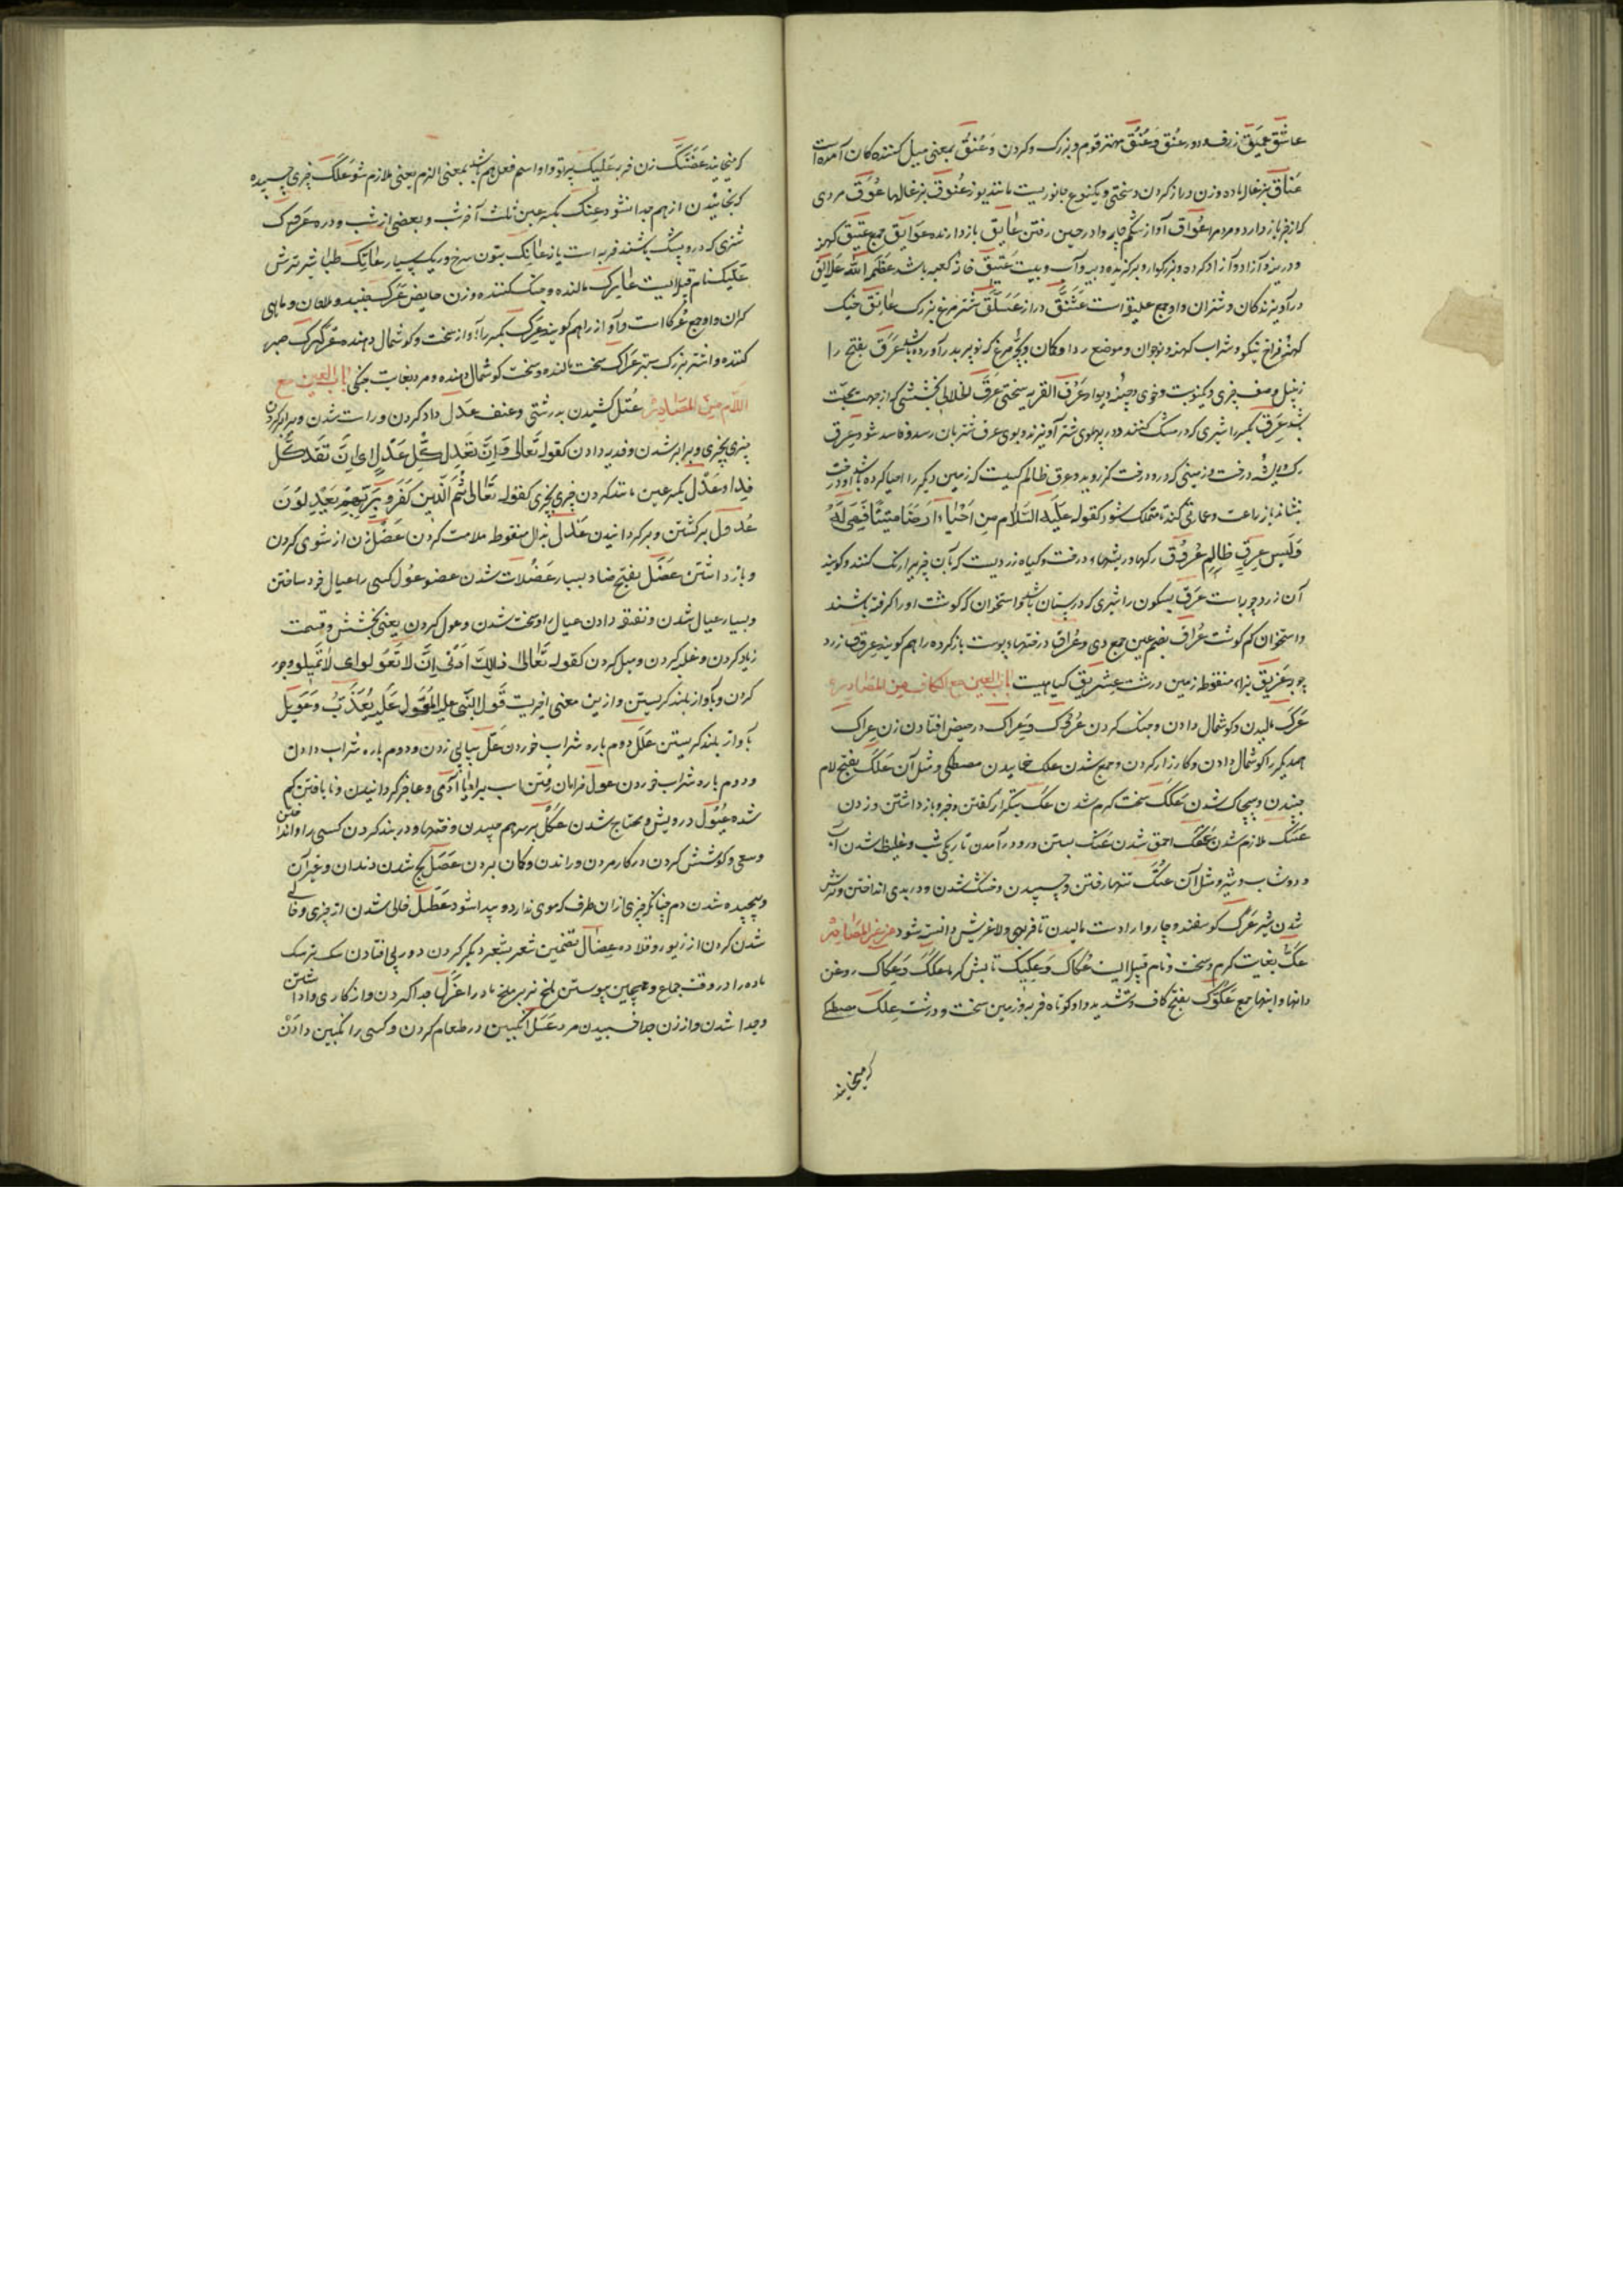 عاشق عمیق ژرف و دور عنق و عنق مهتر قوم و بزرگ و کردن و عنق بمعنی میل کننده کان آمده است
عناق بزغاله ماده و زن دراز کردن و سختی و یکنوع جانوریست مانند یوز عنوق بزغالها عوق مردی
که از خیر باز دارد مردم را عواق آواز شکم چاروا در حین رفتن عایق بازدارنده عوایق جمع عتیق کهنه
و دیرینه و آزاد و آزاد کرده و بزرکوار و برکزیده و پیه و آب و بیت عتیق خانه کعبه باشد عظم الله علایق
درآویزندکان و شتران واو جمع علیق است عشنق دراز عسلق شترمرغ بزرک عاتق خیک
کهنه فراخ نیکو و شراب کهنه و نوجوان و موضع ردا و کمان و بچه مرغ که نو پر بدر آورده باشد عرق بفتح را
زنبیل و صف چیزی و کینوبت و خوی و چینه دیوار عرق القربه سختی عرق الخلال بخششی که از جهت محبت
باشد عرق بکسر را شیری که در مشک کنند و در پهلوی شتر آویزند و بوی عرق شتر بان رسد و فاسد شود عرق
رک و ریشه درخت و زمینی که درو درخت کز روید و عرق ظالم کسیست که زمین دیکر را احیا کرده باشد او درخت
بنشاند یا زراعت و عمارتی کند تا متملک شود کقوله علیه السلام من احیا ارضا میتتا فهی له
و لیس عرق ظالم عروق رکها و ریشهاء درخت و کیاه زردیست که بآن چیزها رنک کنند و کویند
آن زردچوبه است عرق بسکون را شیری که در پستان باشد و استخوان که کوشت او را کرفته باشند
و استخوان کم کوشت عراق بضم عین جمع وی و عراق درختها و پوست باز کرده را هم کویند عرقوف زرد
چوبه عزیق بزاء منقوطه زمین درشت عشریق کیاهیست باب العین مع الکاف من المصادر
عرک مالیدن و کوشمال دادن و جنک کردن عروک و عراک در حیض افتادن زن عراک
همدیکر را کوشمال دادن و کارزار کردن و جمع شدن علک خاییدن مصطکی و مثل آن علک بفتح لام
چسپیدن و پیچاک شدن عکک سخت کرم شدن عک بتکرار کفتن و خبر و باز داشتن و زدن
عسک ملازم شدن عفک احمق شدن عنک بستن در و در آمدن تاریکی شب و غلیظ شدن آب
و دوشاب و شیر و مثل آن عتک تنها رفتن و چسپیدن و خشک شدن و در بدی انداختن و ترش
شدن شیر عرک کوسفند و چاروا را دست مالیدن تا فربهی و لاغریش دانسته شود من غیر المصادر
عک بغایت کرم و سخت و نام قبیله ایست عکاک و عکیک تابش کرما عکک و عکاک روغن
دانها و اینها جمع عکوک بفتح کاف و تشدید واو کوتاه فربه و زمین سخت و درشت علک مصطکا
که میخایند
که میخایند عضنک زن فربه علیک بر تو و او اسم فعل هم باشد بمعنی الزم یعنی ملازم شو علک چیزی چسپیده
که بخائیدن از هم جدا نشود عنک بکسر عین ثلث آخر شب و بعضی از شب و در عروک
شتری که درو شک باشند فربه است یا نه عاتک بتون سرخ و ریک بسیار عاتک طلبا شیر ترش
عتیک نام قبیلایست عارک مالنده و جنک کننده و زن حایض عرک چنبنده و ملاحان و ماهی
کران واو جمع عرکا است و آواز را هم کویند عرک بکسر را آواز سخت و کوشمال دهنده عرکرک صبر
کننده و اشتر بزرک ستبر عراک سخت مالنده و سخت کوشمال دهنده و مرد بغایت جنکی باب العین مع
اللام من المصادر عتل کشیدن به رشتی و عنف عدل داد کردن و راست شدن و برابر کردن
چیزی بچیزی و برابر شدن و فدیه دادن کقوله تعالی و ان تعدل کل عدل ای ان تفد کل
فدا و عدل بکسر عین مانند کردن چیزی بچیزی کقوله تعالی ثم الذین کفرو بربهم یعدلون
عدول برکشتن و برکردانیدن عذل بذال منقوطه ملامت کردن عضل زن از شوی کردن
و باز داشتن عضل بفتح ضاد بسیار عضلات شدن عضو عول کسی را عیال خود ساختن
و بسیار عیال شدن و نفقه دادن عیال را و سخت شدن و عول کردن یعنی بخشش و قسمت
زیاد کردن و غلبه کردن و میل کردن کقوله تعالی ذلک ادنی ان لا تعولوا ای لا تمیلوا و جور
کردن و باواز بلند کریستن و ازین معنی اخیریست قول النبی علیه المعول علیه یعذب و عویل
باواز بلند کریستن علل دوم باره شراب خوردن عل پیاپی زدن و دوم باره شراب دادن
و دوم باره شراب خوردن عول خرامان رفتن اسب یا آدمی و عاجز کردانیدن و نایافتن کم
شده عیول درویش و محتاج شدن عکل بر سر هم چیدن و فتنها و در بند کردن کسی را و انداختن
و سعی و کوشش کردن در کار مردن و راندن و کمان بردن عصل کج شدن دندان و غیر آن
و پیچیده شدن دم چنانکه چیزی از آن طرف که موی ندارد پیدا شود عطل خالی شدن از چیزی و خالی
شدن کردن از زیور و قلاده عضال تضمین شعر بشعر دیکر کردن و در پی افتادن سک نر سک
ماده را در وقت جماع و همچنین پیوستن ملخ نر بر ملخ ماده را عزل جدا کردن و از کاری وا داشتن
و جدا شدن و از زن جدا خسپیدن مرد عسل انکبین در طعام کردن و کسی را انکبین دادن